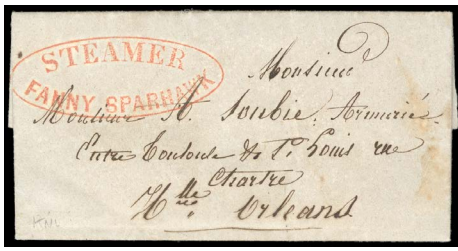 STEAMER
FANNY SPARHAWK
Monsieur
Monsieur St. Soubie, Armurié
Entre Toulouse & St. Louis rue
Chartre
Nlle. Orleans